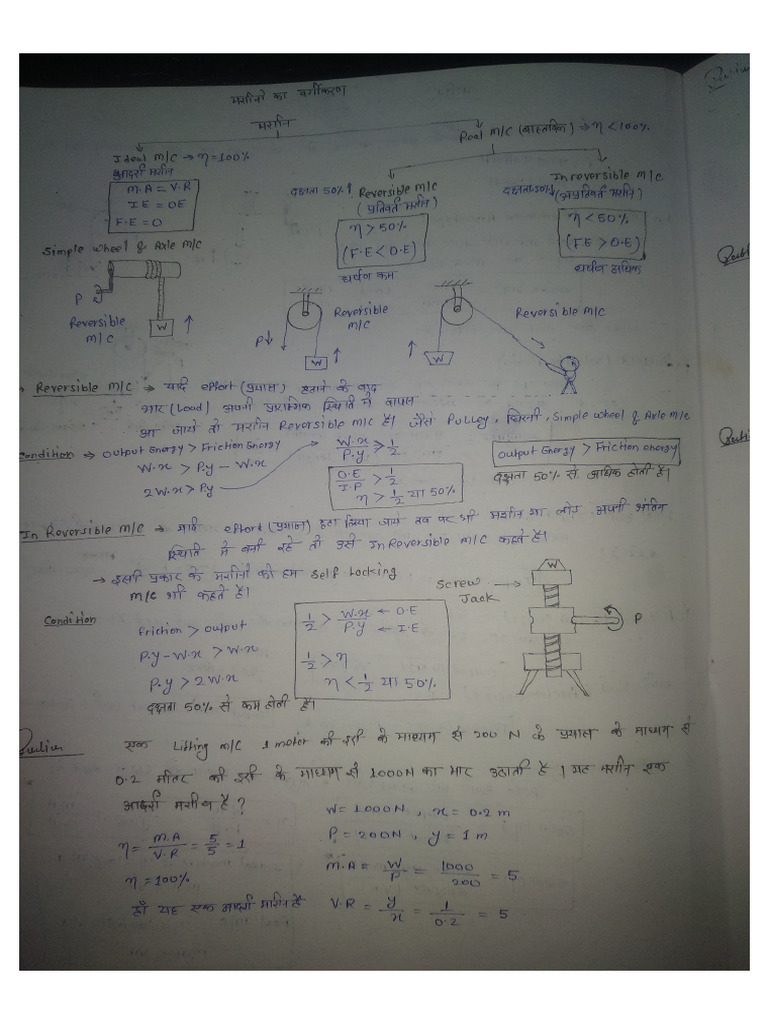 मशीनों का वर्गीकरण
मशीन
Ideal M/C → η=100%
आदर्श मशीन
M.A = V.R
I.E = O.E
F.E = 0
Real M/C (वास्तविक) → η <100%
दक्षता 50%↑ Reversible M/C
(प्रतिवर्ती मशीन)
η > 50%
(F.E < O.E)
घर्षण कम
Inreversible M/C
दक्षता 50%↓ (अप्रतिवर्ती मशीन)
η < 50%
(F.E > O.E)
घर्षण अधिक
Simple wheel & Axle M/C
P
Reversible
M/C
W
P
Reversible
M/C
W
Reversible M/C
W
Reversible M/C → यदि effort (प्रयास) हटाने के बाद
भार (Load) अपनी प्रारंभिक स्थिति में वापस
आ जाये तो मशीन Reversible M/C है। जैसे Pulley, घिरनी, Simple wheel & Axle M/C
Condition → Output Energy > Friction Energy
W.x > P.y - W.x
2W.x > Py
W.x / P.y > 1/2
O.E / I.P > 1/2
η > 1/2 या 50%
Output Energy > Friction energy
दक्षता 50% से अधिक होती है।
In Reversible M/C → यदि effort (प्रयास) हटा लिया जाये तब पर भी मशीन का लोड अपनी अंतिम
स्थिति में बनी रहे तो उसे InReversible M/C कहते है।
→ इसी प्रकार के मशीनों को हम Self Locking
M/C भी कहते है।
Screw
Jack
W
P
Condition
Friction > output
P.y - W.x > W.x
P.y > 2W.x
दक्षता 50% से कम होती है।
1/2 > W.x / P.y ← O.E ← I.E
1/2 > η
η < 1/2 या 50%
एक Lifting M/C 1 motor की दूरी के माध्यम से 200 N के प्रयास के माध्यम से
0.2 मीटर की दूरी के माध्यम से 1000N का भार उठाती है। यह मशीन एक
आदर्श मशीन है?
W = 1000N , x = 0.2 m
P = 200N , y = 1 m
η = M.A / V.R = 5/5 = 1
η = 100%
हाँ यह एक आदर्श मशीन है
M.A = W/P = 1000/200 = 5
V.R = y/x = 1/0.2 = 5